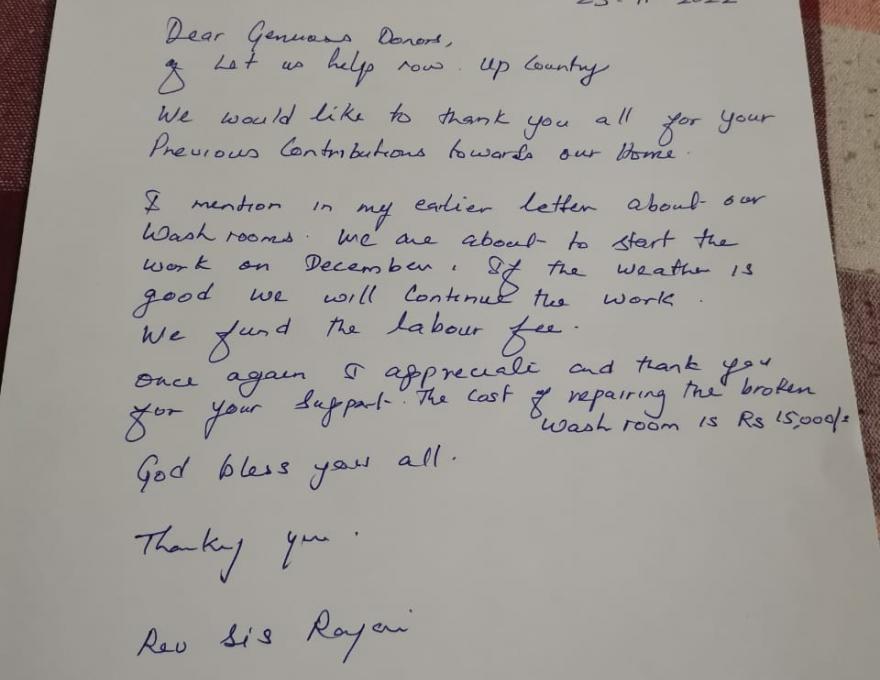 2022
Dear Genuous Donors,
of Let us help now. Up Country
We would like to thank you all for your
Previous Contributions towards our Home.
I mention in my earlier letter about our
Wash rooms. We are about to start the
work on December. If the weather is
good we will Continue the work.
We fund the labour fee.
Once again I appreciate and thank you
for your Support. The cost of repairing the broken
wash room is Rs 15,000/=
God bless you all.
Thanking you.
Rev Sis Rajani